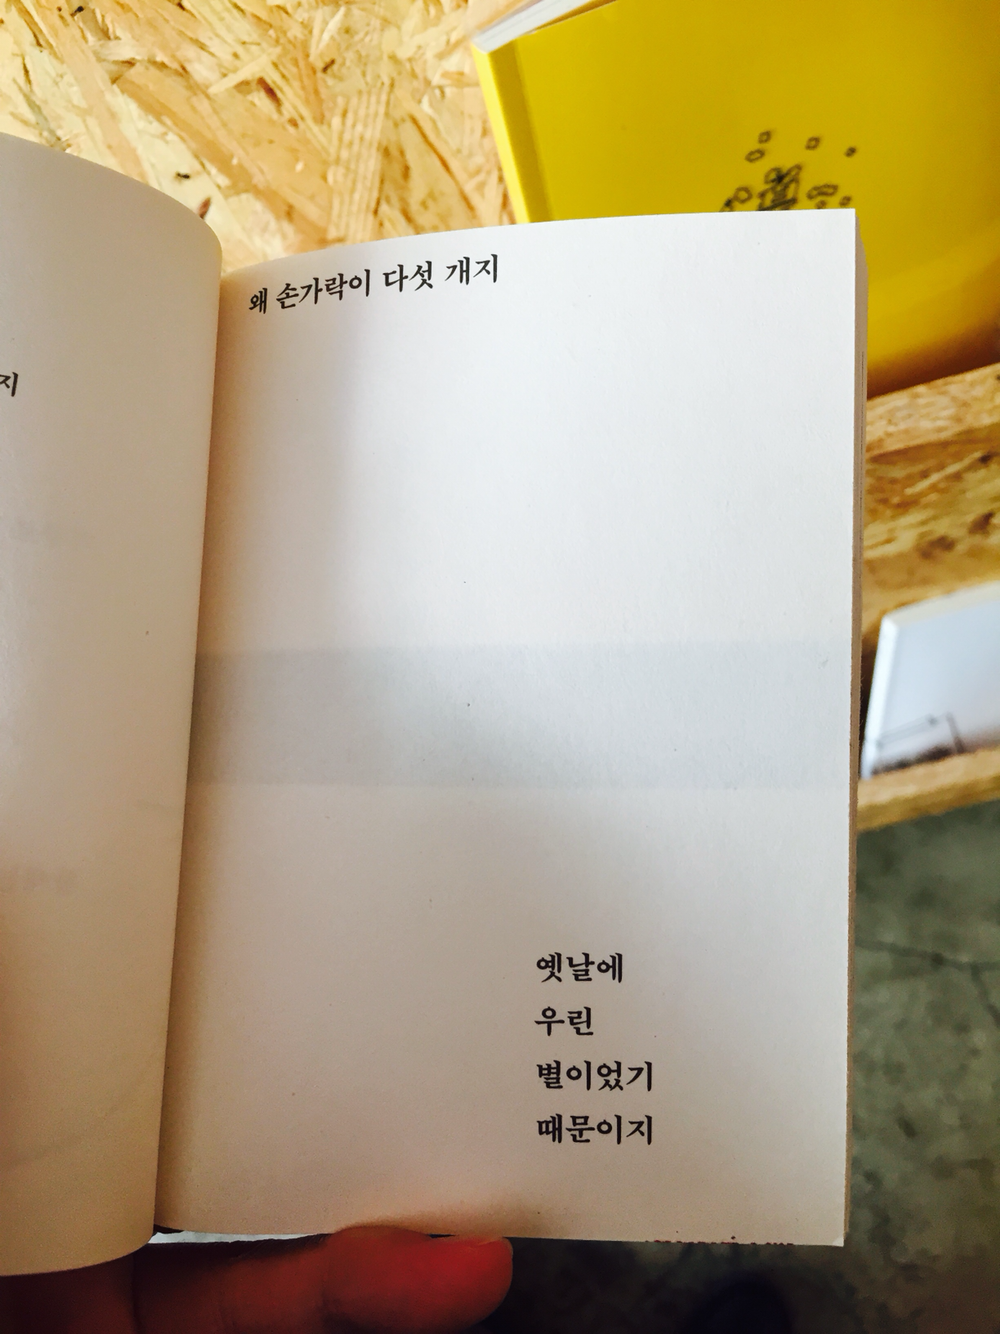 지
왜 손가락이 다섯 개지
옛날에
우린
별이었기
때문이지